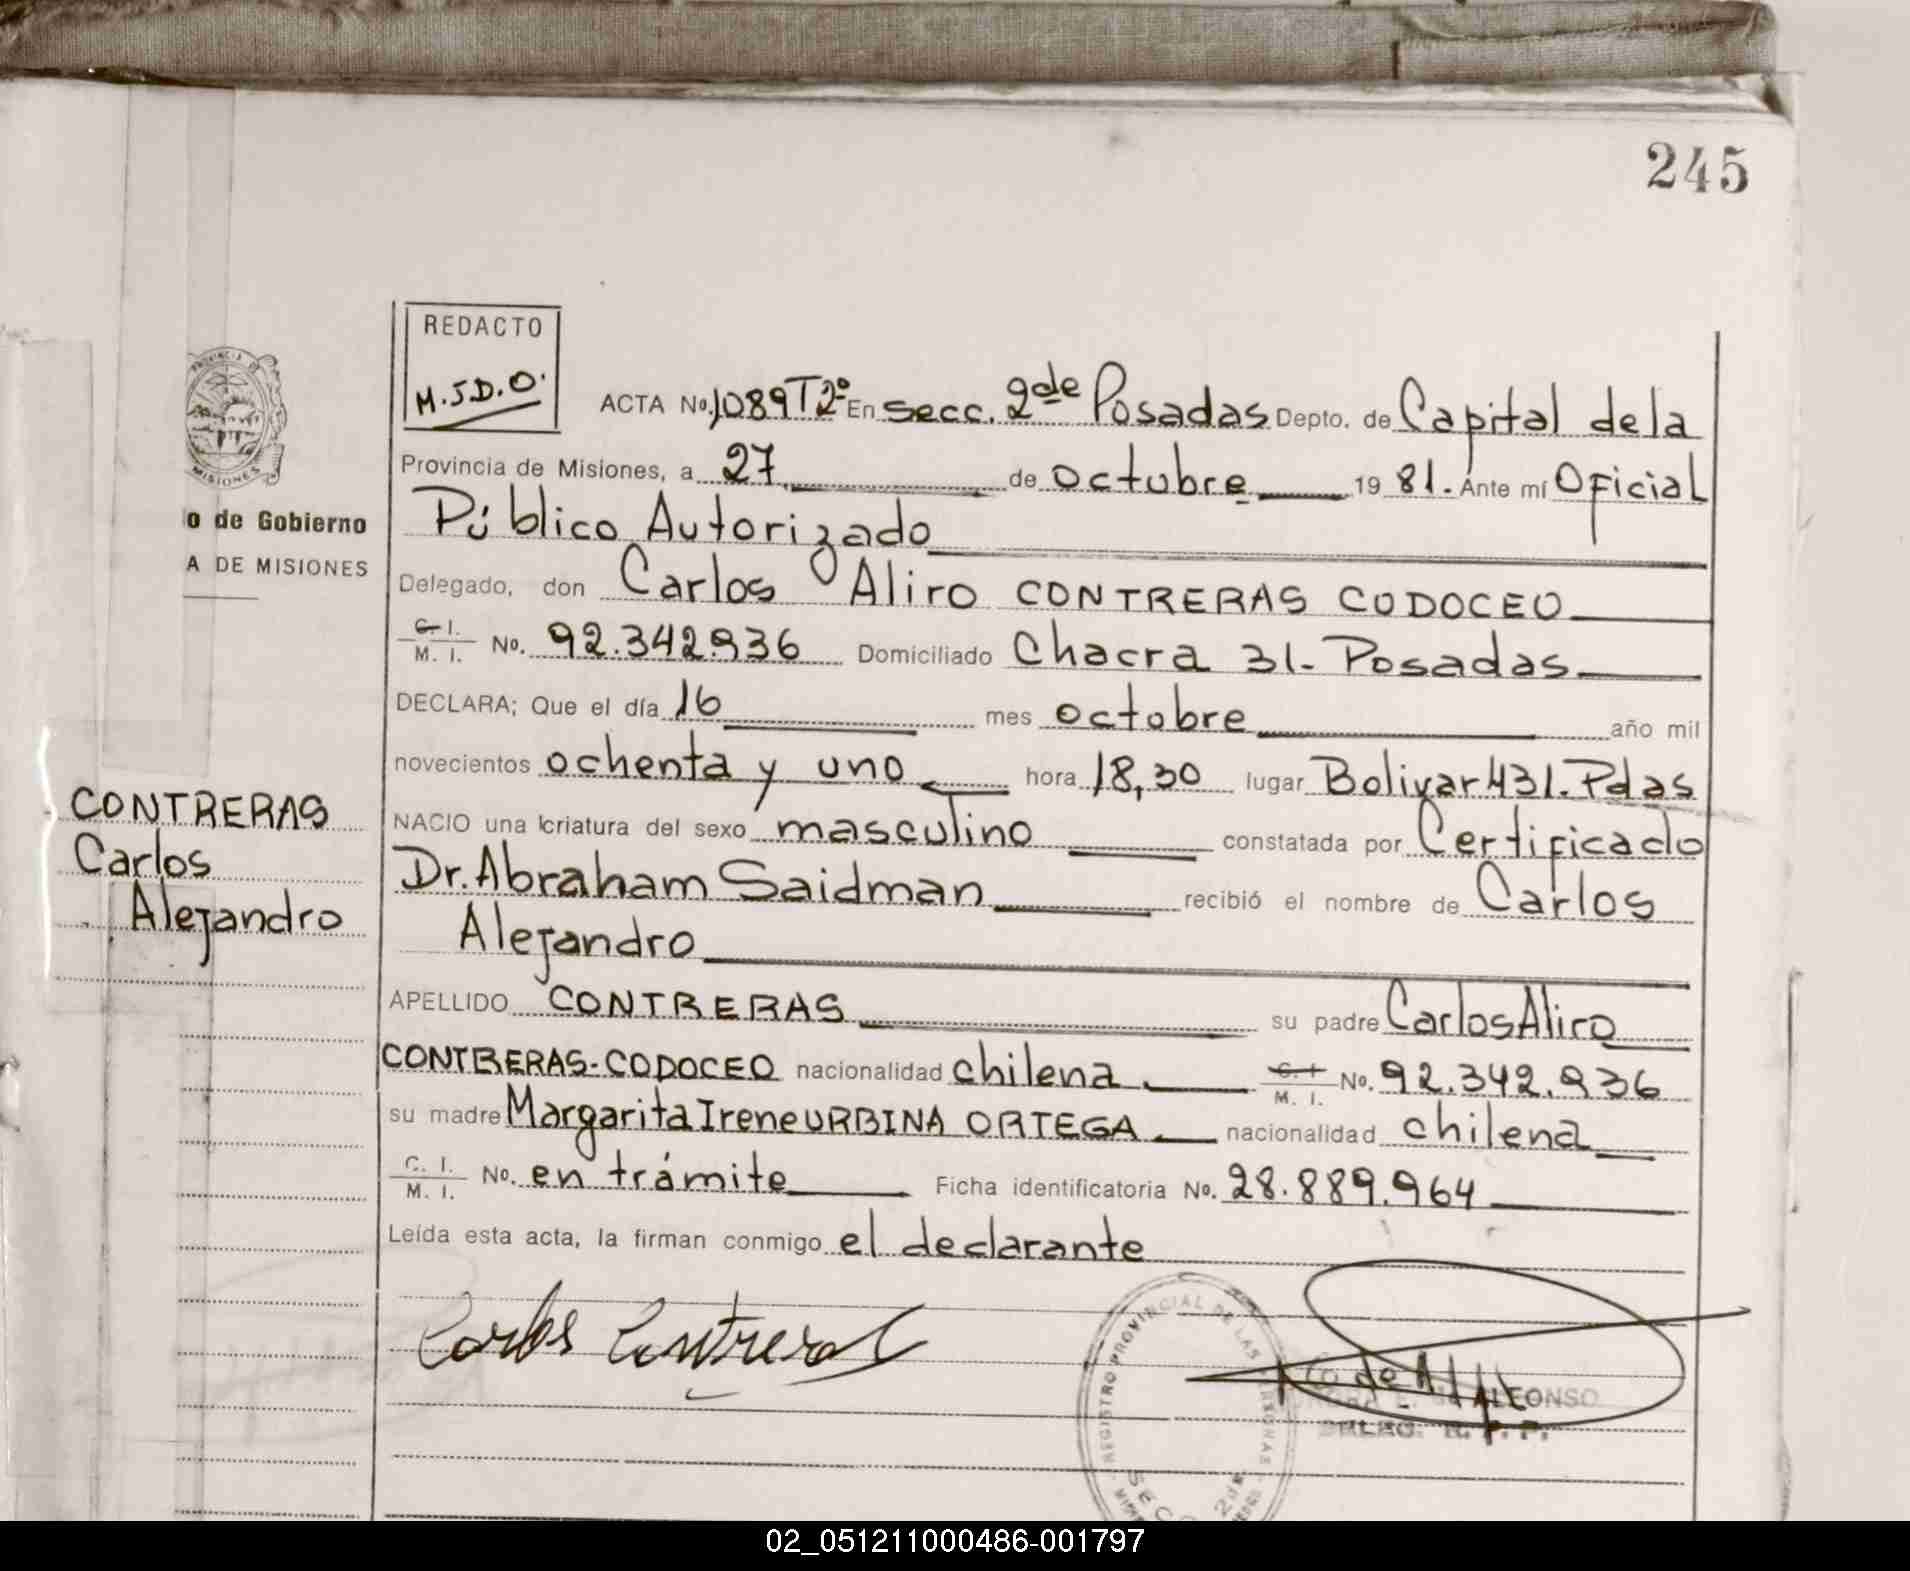 245
REDACTO
M.J.D.O.
ACTA No. 1089 T2º En secc. 2de Posadas Depto. de Capital de la
Provincia de Misiones, a 27 de octubre 19 81. Ante mí Oficial
Público Autorizado
Delegado, don Carlos Aliro CONTRERAS CODOCEO
C. I.
M. I. No. 92.342.936 Domiciliado Chacra 31.- Posadas
DECLARA; Que el día 16 mes octubre año mil
novecientos ochenta y uno hora 18,30 lugar Bolivar 431. Pdas
NACIO una criatura del sexo masculino constatada por Certificado
Dr. Abraham Saidman recibió el nombre de Carlos
Alejandro
APELLIDO CONTRERAS su padre Carlos Aliro
CONTRERAS-CODOCEO nacionalidad chilena C. I.
M. I. No. 92.342.936
su madre Margarita Irene URBINA ORTEGA nacionalidad chilena
C. I.
M. I. No. en trámite Ficha identificatoria No. 28.889.964
Leída esta acta, la firman conmigo el declarante
Carlos Contreras
ALFONSO
DELEG. R. P. P.
REGISTRO PROVINCIAL DE LAS PERSONAS
PROVINCIA DE
MISIONES
o de Gobierno
A DE MISIONES
CONTRERAS
Carlos
Alejandro
02_051211000486-001797